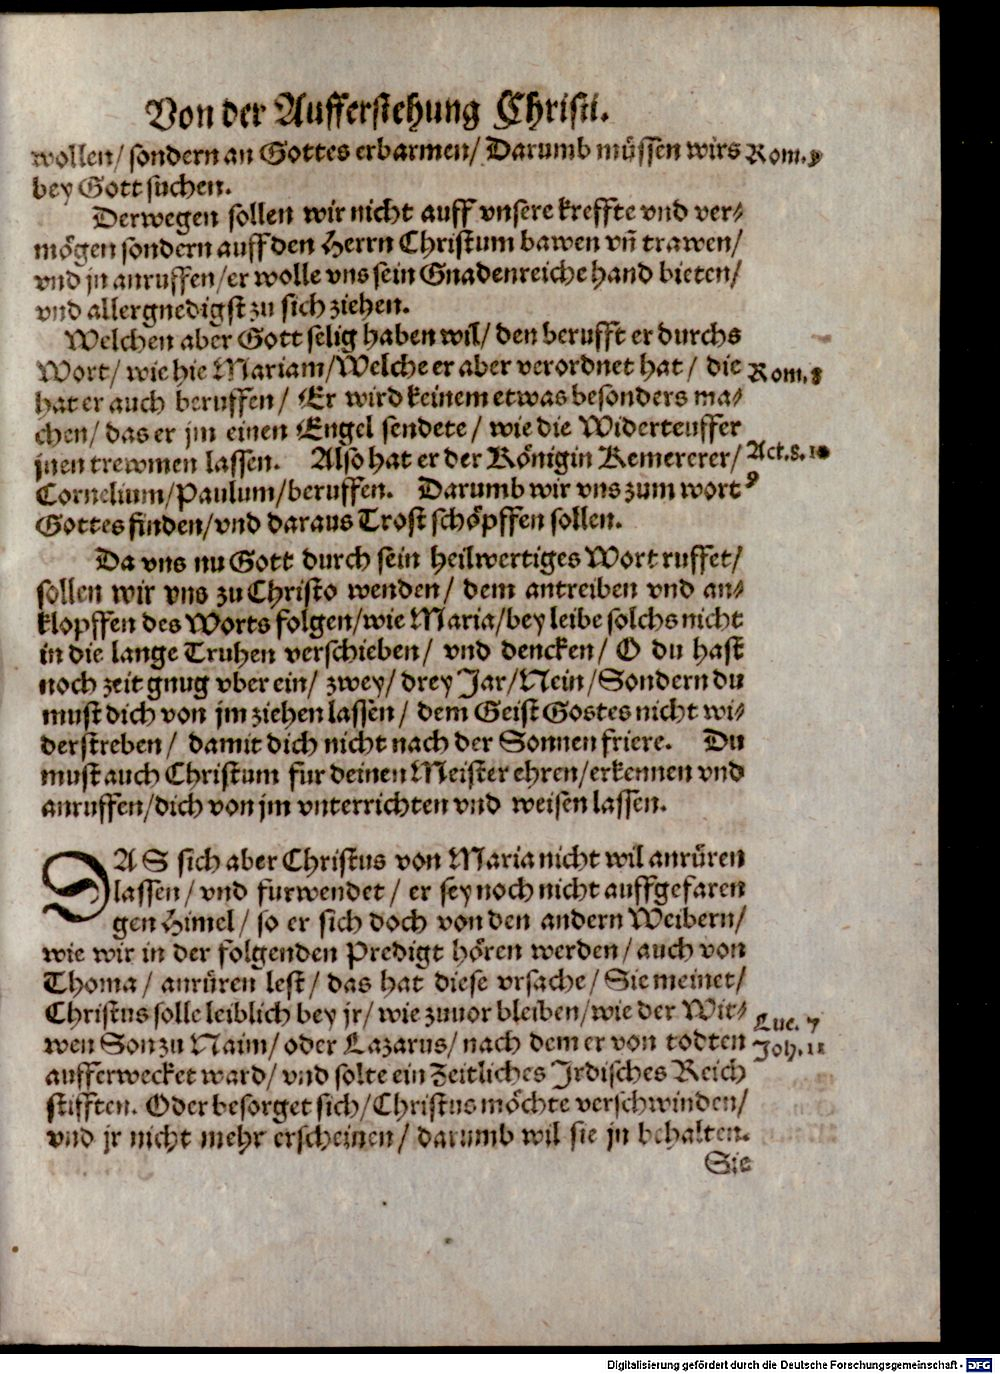 Von der Aufferstehung Christi.
wollen/ sondern an Gottes erbarmen/ Darumb müssen wirs Rom. 9
bey Gott suchen.
Derwegen sollen wir nicht auff vnsere kreffte vnd ver-
mögen sondern auff den Herrn Christum bawen vñ trawen/
vnd jn anruffen/ er wolle vns sein Gnadenreiche hand bieten/
vnd allergnedigst zu sich ziehen.
Welchen aber Gott selig haben wil/ den berufft er durchs
Wort/ wie hie Mariam/ Welche er aber verordnet hat/ die Rom. 8
hat er auch beruffen/ Er wird keinem etwas besonders ma-
chen/ das er jm einen Engel sendete/ wie die Widerteuffer
jnen trewmen lassen. Also hat er der Königin Kemererer/ Act. 8. 10
Cornelium/ Paulum/ beruffen. Darumb wir vns zum wort 9
Gottes finden/ vnd daraus Trost schöpffen sollen.
Da vns nu Gott durch sein heilwertiges Wort ruffet/
sollen wir vns zu Christo wenden/ dem antreiben vnd an-
klopffen des Worts folgen/ wie Maria/ bey leibe solchs nicht
in die lange Truhen verschieben/ vnd dencken/ O du hast
noch zeit gnug vber ein/ zwey/ drey Jar/ Nein/ Sondern du
must dich von jm ziehen lassen/ dem Geist Gostes nicht wi-
derstreben/ damit dich nicht nach der Sonnen friere. Du
must auch Christum fur deinen Meister ehren/ erkennen vnd
anruffen/ dich von jm vnterrichten vnd weisen lassen.
DAS sich aber Christus von Maria nicht wil anrüren
lassen/ vnd furwendet/ er sey noch nicht auffgefaren
gen Himel/ so er sich doch von den andern Weibern/
wie wir in der folgenden Predigt hören werden/ auch von
Thoma/ anrüren lest/ das hat diese vrsache/ Sie meinet/
Christus solle leiblich bey jr/ wie zuuor bleiben/ wie der Wit-
wen Son zu Naim/ oder Lazarus/ nach dem er von todten Luc. 7
aufferwecket ward/ vnd solte ein Zeitliches Jrdisches Reich Joh. 11
stifften. Oder besorget sich/ Christus möchte verschwinden/
vnd jr nicht mehr erscheinen/ darumb wil sie jn behalten.
Sie
Digitalisierung gefördert durch die Deutsche Forschungsgemeinschaft - DFG